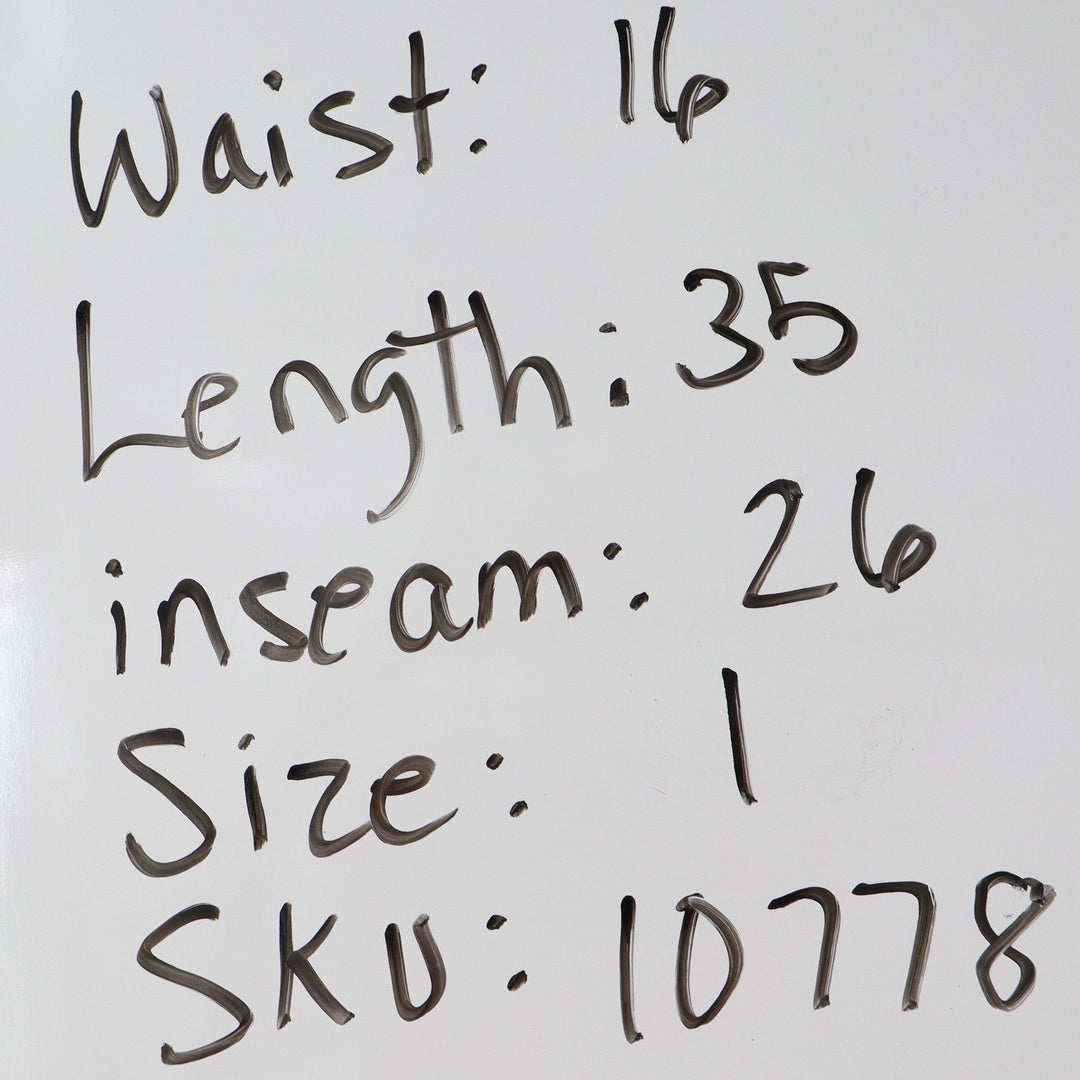 Waist: 16
Length: 35
inseam: 26
Size: 1
SKU: 10778